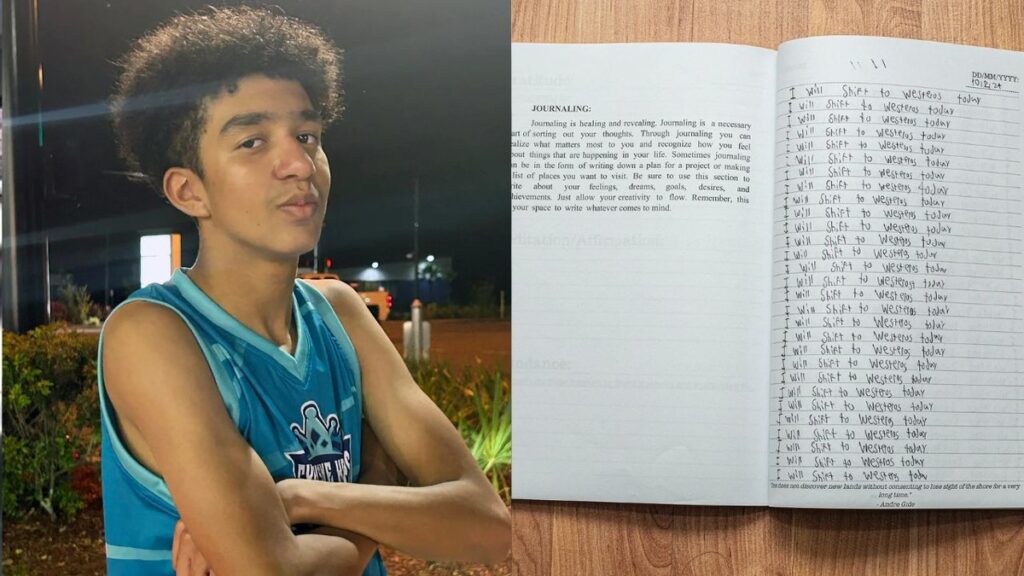 JOURNALING:
Journaling is healing and revealing. Journaling is a necessary
art of sorting out your thoughts. Through journaling you can
ealize what matters most to you and recognize how you feel
bout things that are happening in your life. Sometimes journaling
an be in the form of writing down a plan for a project or making
list of places you want to visit. Be sure to use this section to
rite about your feelings, dreams, goals, desires, and
chievements. Just allow your creativity to flow. Remember, this
your space to write whatever comes to mind.
DD/MM/YYYY:
I will shift to westeros today
I will shift to westeros today
I will shift to westeros today
I will shift to westeros today
I will shift to westeros today
I will shift to westeros today
I will shift to westeros today
I will shift to westeros today
I will shift to westeros today
I will shift to westeros today
I will shift to westeros today
I will shift to westeros today
I will shift to westeros today
I will shift to westeros today
I will shift to westeros today
I will shift to westeros today
I will shift to westeros today
I will shift to westeros today
I will shift to westeros today
I will shift to westeros today
I will shift to westeros today
I will shift to westeros today
I will shift to westeros today
I will shift to westeros today
I will shift to westeros today
I will shift to westeros today
I will shift to westeros today
I will shift to westros today
I will shift to westeros today
does not discover new lands without consenting to lose sight of the shore for a very
long time."
- Andre Gide